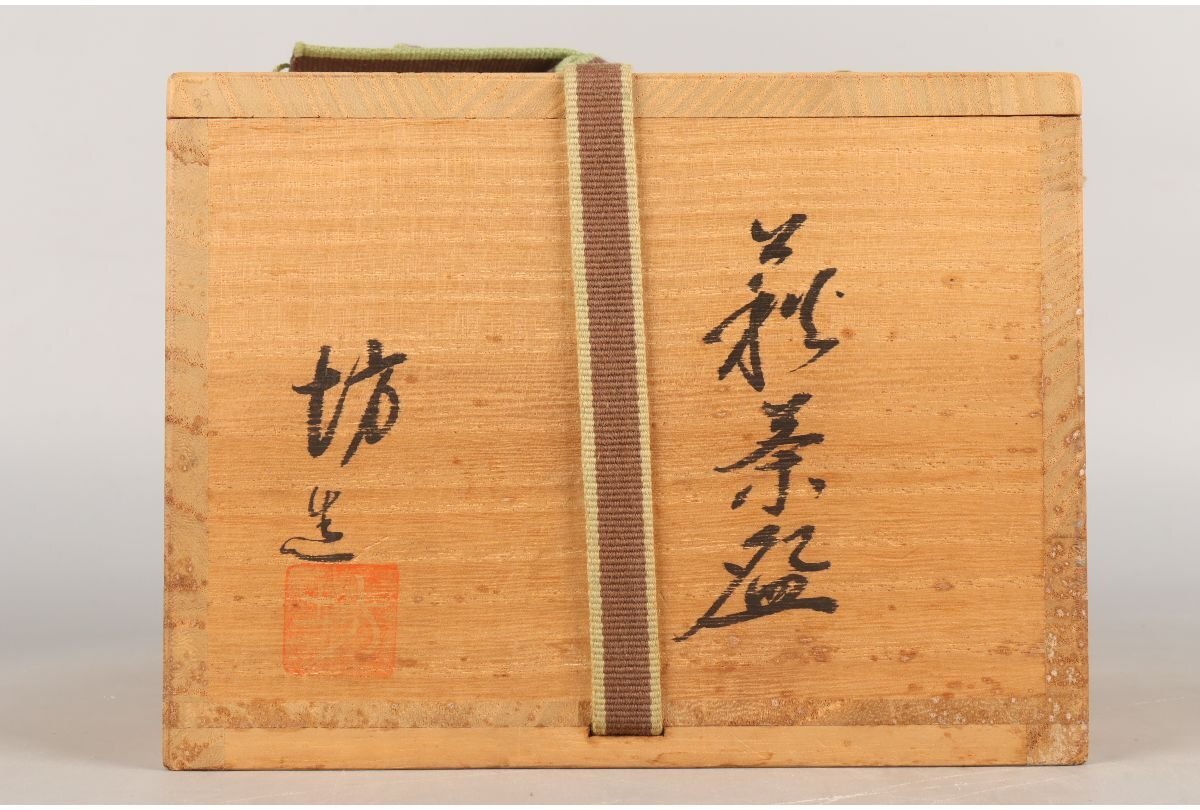 萩茶盌
坊造